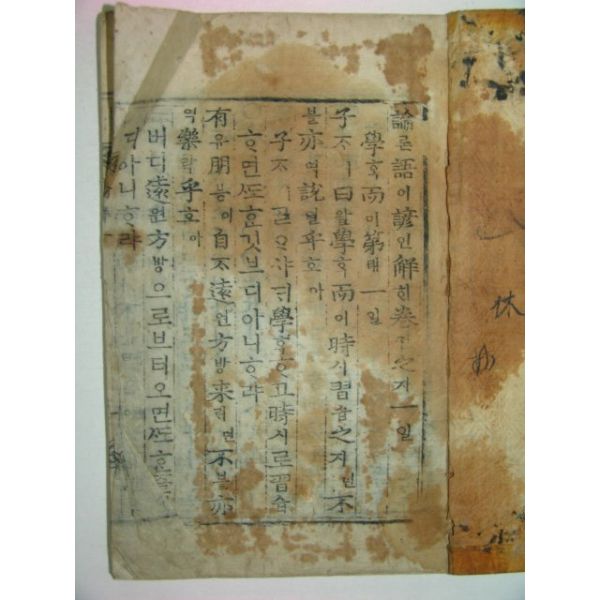 論론語어諺언解ᄒᆡ卷권之지一일
學ᄒᆞᆨ而이第뎨一일
子ᄌᆞㅣ曰왈學ᄒᆞᆨ而이時시習습之지면不
블亦역說열乎호아
子ᄌᆞㅣᄀᆞᆯᄋᆞ샤ᄃᆡ學ᄒᆞᆨᄒᆞ고時시로習습
ᄒᆞ면ᄯᅩᄒᆞᆫ깃브디아니ᄒᆞ랴
有유朋븡이自ᄌᆞ遠원方방來ᄅᆡ면不블亦
역樂락乎호아
버디遠원方방으로브터오면ᄯᅩᄒᆞᆫ
디아니ᄒᆞ랴
林